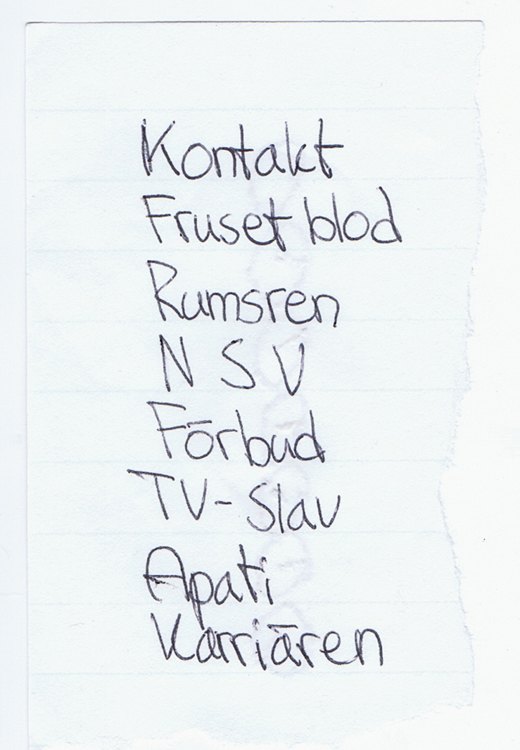 Kontakt
Fruset blod
Rumsren
N S V
Förbud
TV-Slav
Apati
Karriären